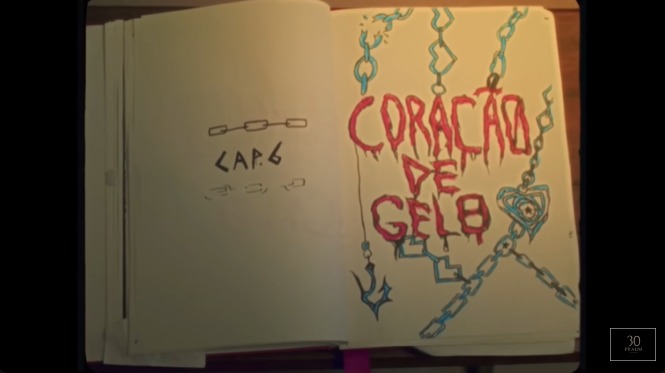 CAP. 6
CORAÇÃO
DE
GELO
30
PRAUM